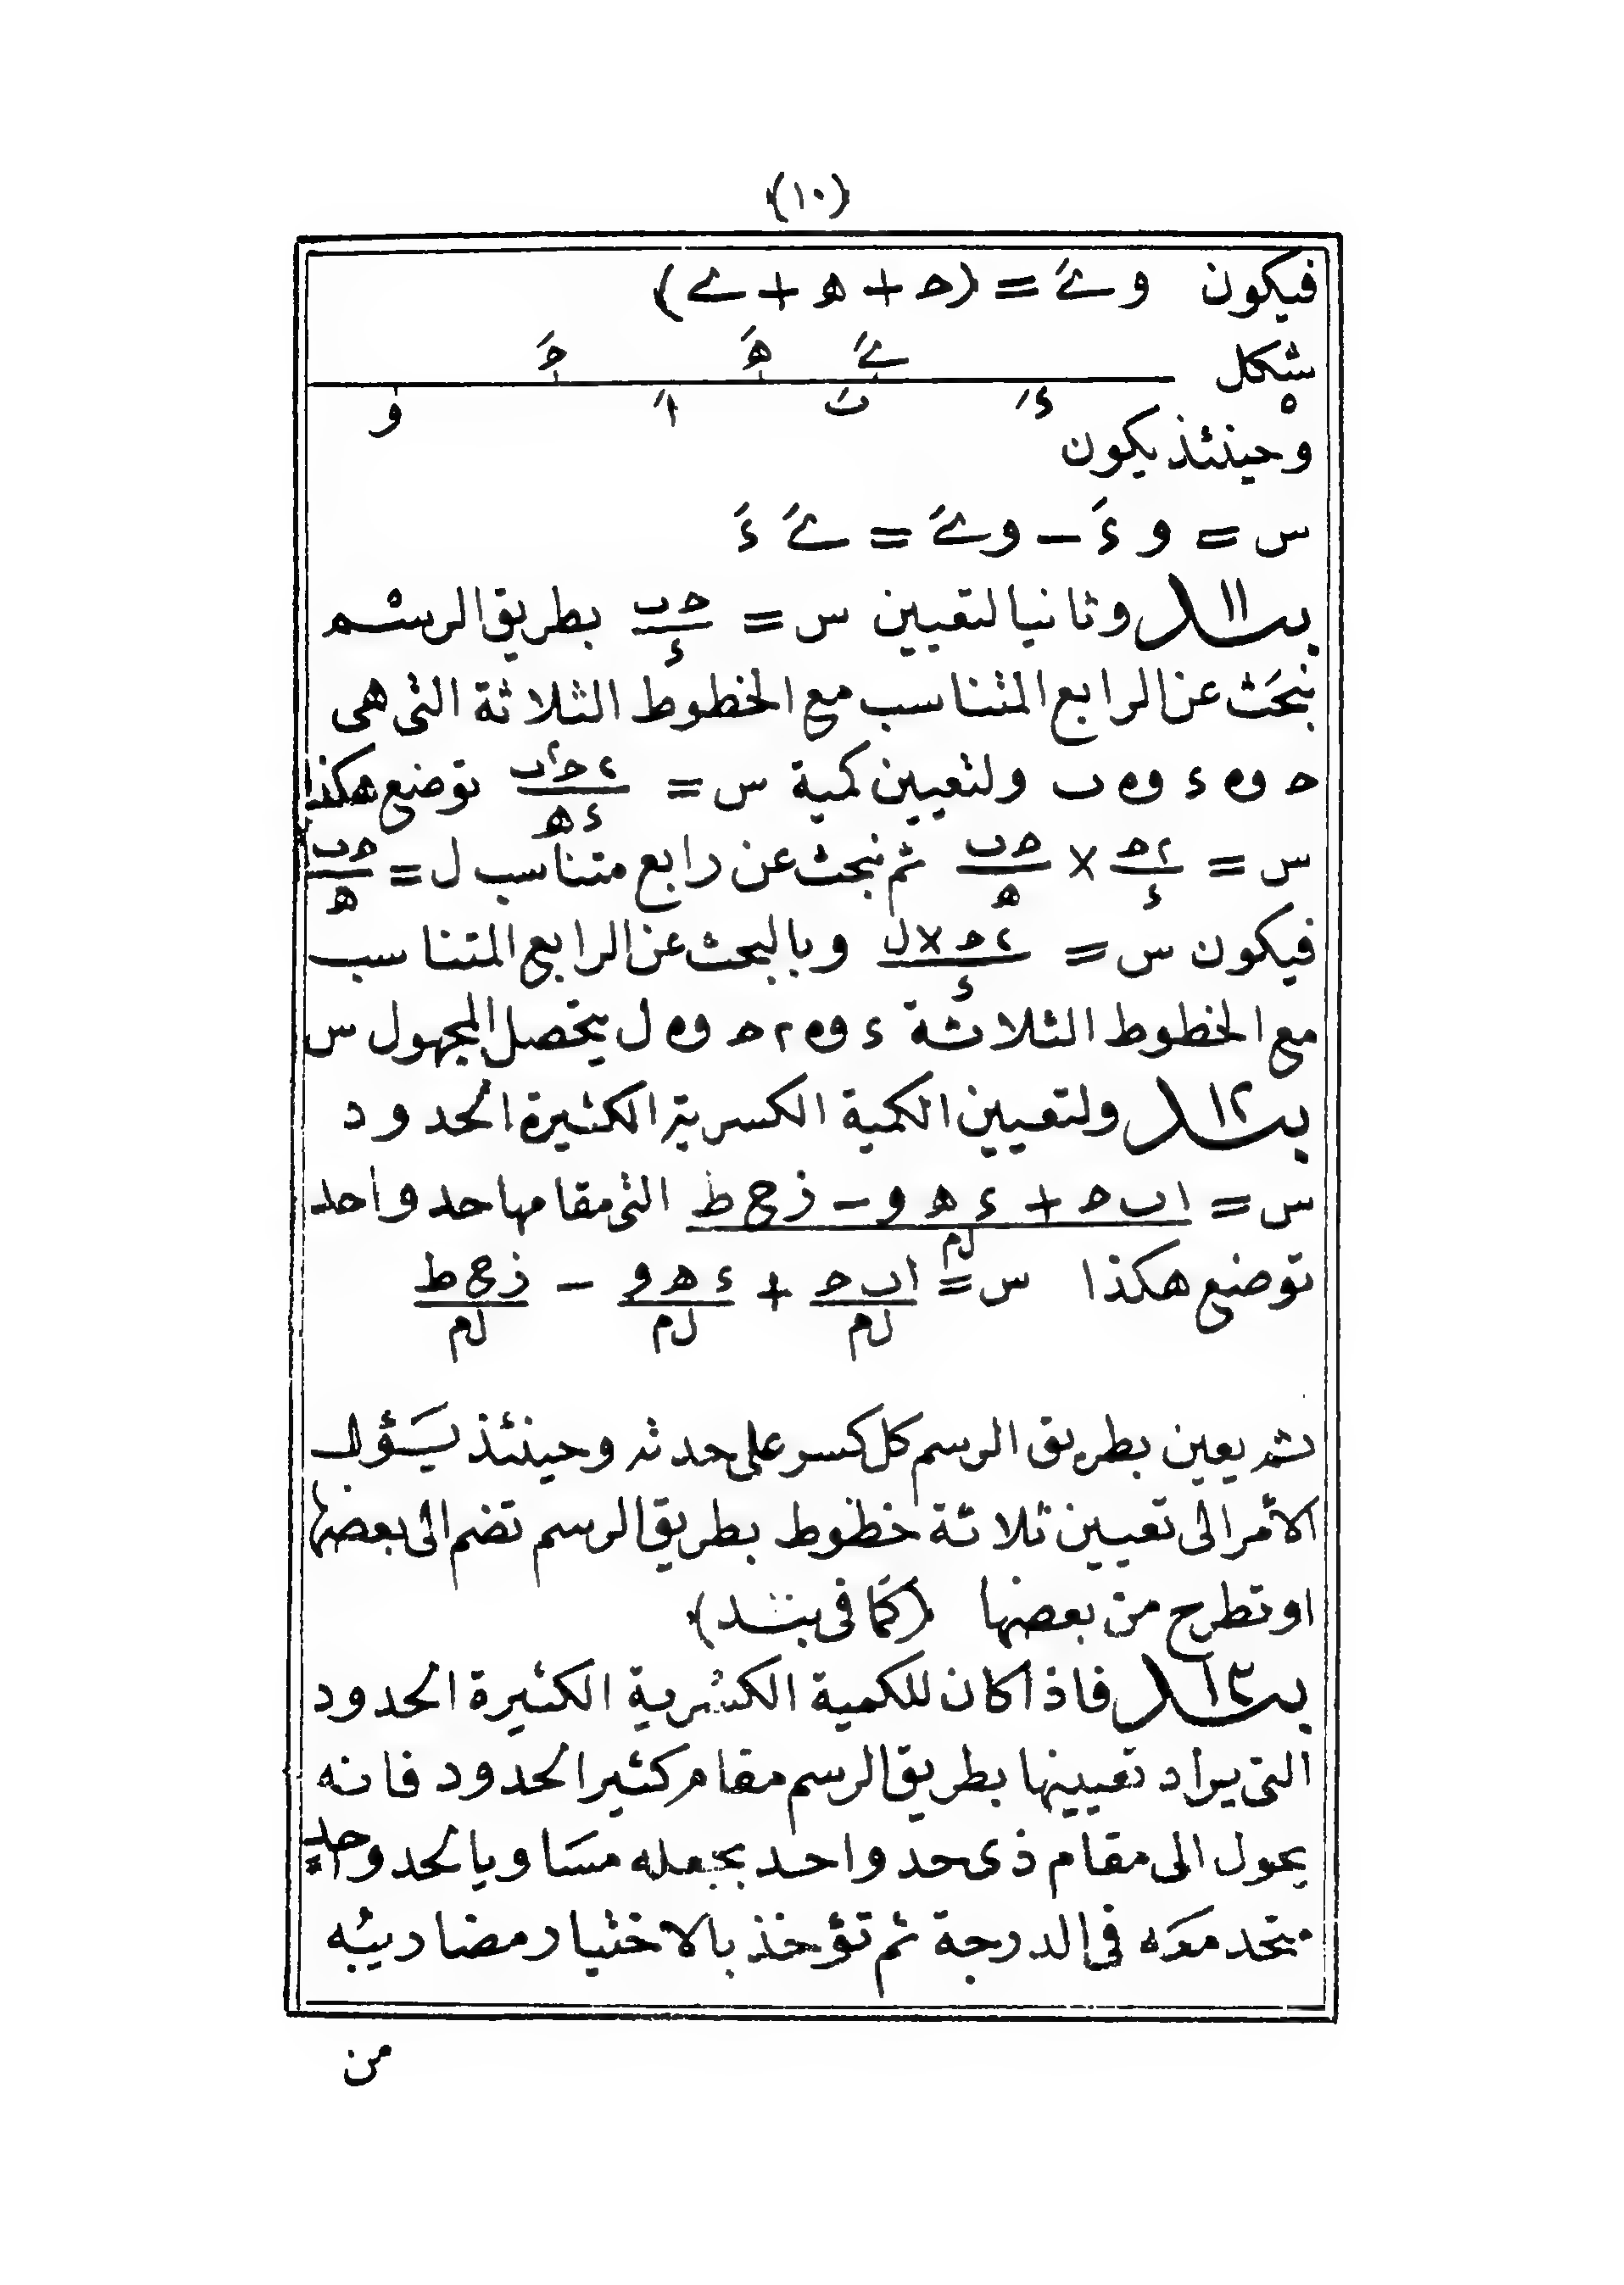 (١٠)
فيكون وىَ = (حـ + هـ + ى)
شكل ٥
حـَ هـَ ىَ
و اَ بَ ءَ
وحينئذ يكون
س = و ءَ − وىَ = ىَ ءَ
بند ١١ وثانيا لتعيين س = حـ ب / ء بطريق الرسم
نبحث عن الرابع المتناسب مع الخطوط الثلاثة التى هى
حـ و ء و ب ولتعيين كمية س = ٢ حـَ ب / ء هـ توضع هكذا
س = ٢ حـ / ء × حـ ب / هـ ثم نبحث عن رابع متناسب ل = حـ ب / هـ
فيكون س = ٢ حـ × ل / ء وبالبحث عن الرابع المتناسب
مع الخطوط الثلاثة ء و ٢ حـ و ل يتحصل المجهول س
بند ١٢ ولتعيين الكمية الكسرية الكثيرة الحدود
س = ا ب حـ + ء هـ و − ز ح ط / ل م التى مقامها حد واحد
توضع هكذا س = ا ب حـ / ل م + ء هـ و / ل م − ز ح ط / ل م
ثم يعين بطريق الرسم كل كسر على حدته وحينئذ يؤول
الأمر الى تعيين ثلاثة خطوط بطريق الرسم تضم الى بعضها
او تطرح من بعضها (كما فى بند)
بند ١٣ فاذا كان للكمية الكسرية الكثيرة الحدود
التى يراد تعيينها بطريق الرسم مقام كثير الحدود فانه
يحول الى مقام ذى حد واحد بجعله مساويا لحد واحد
متحد معه فى الدرجة ثم تؤخذ بالاختيار مضاريبه
من